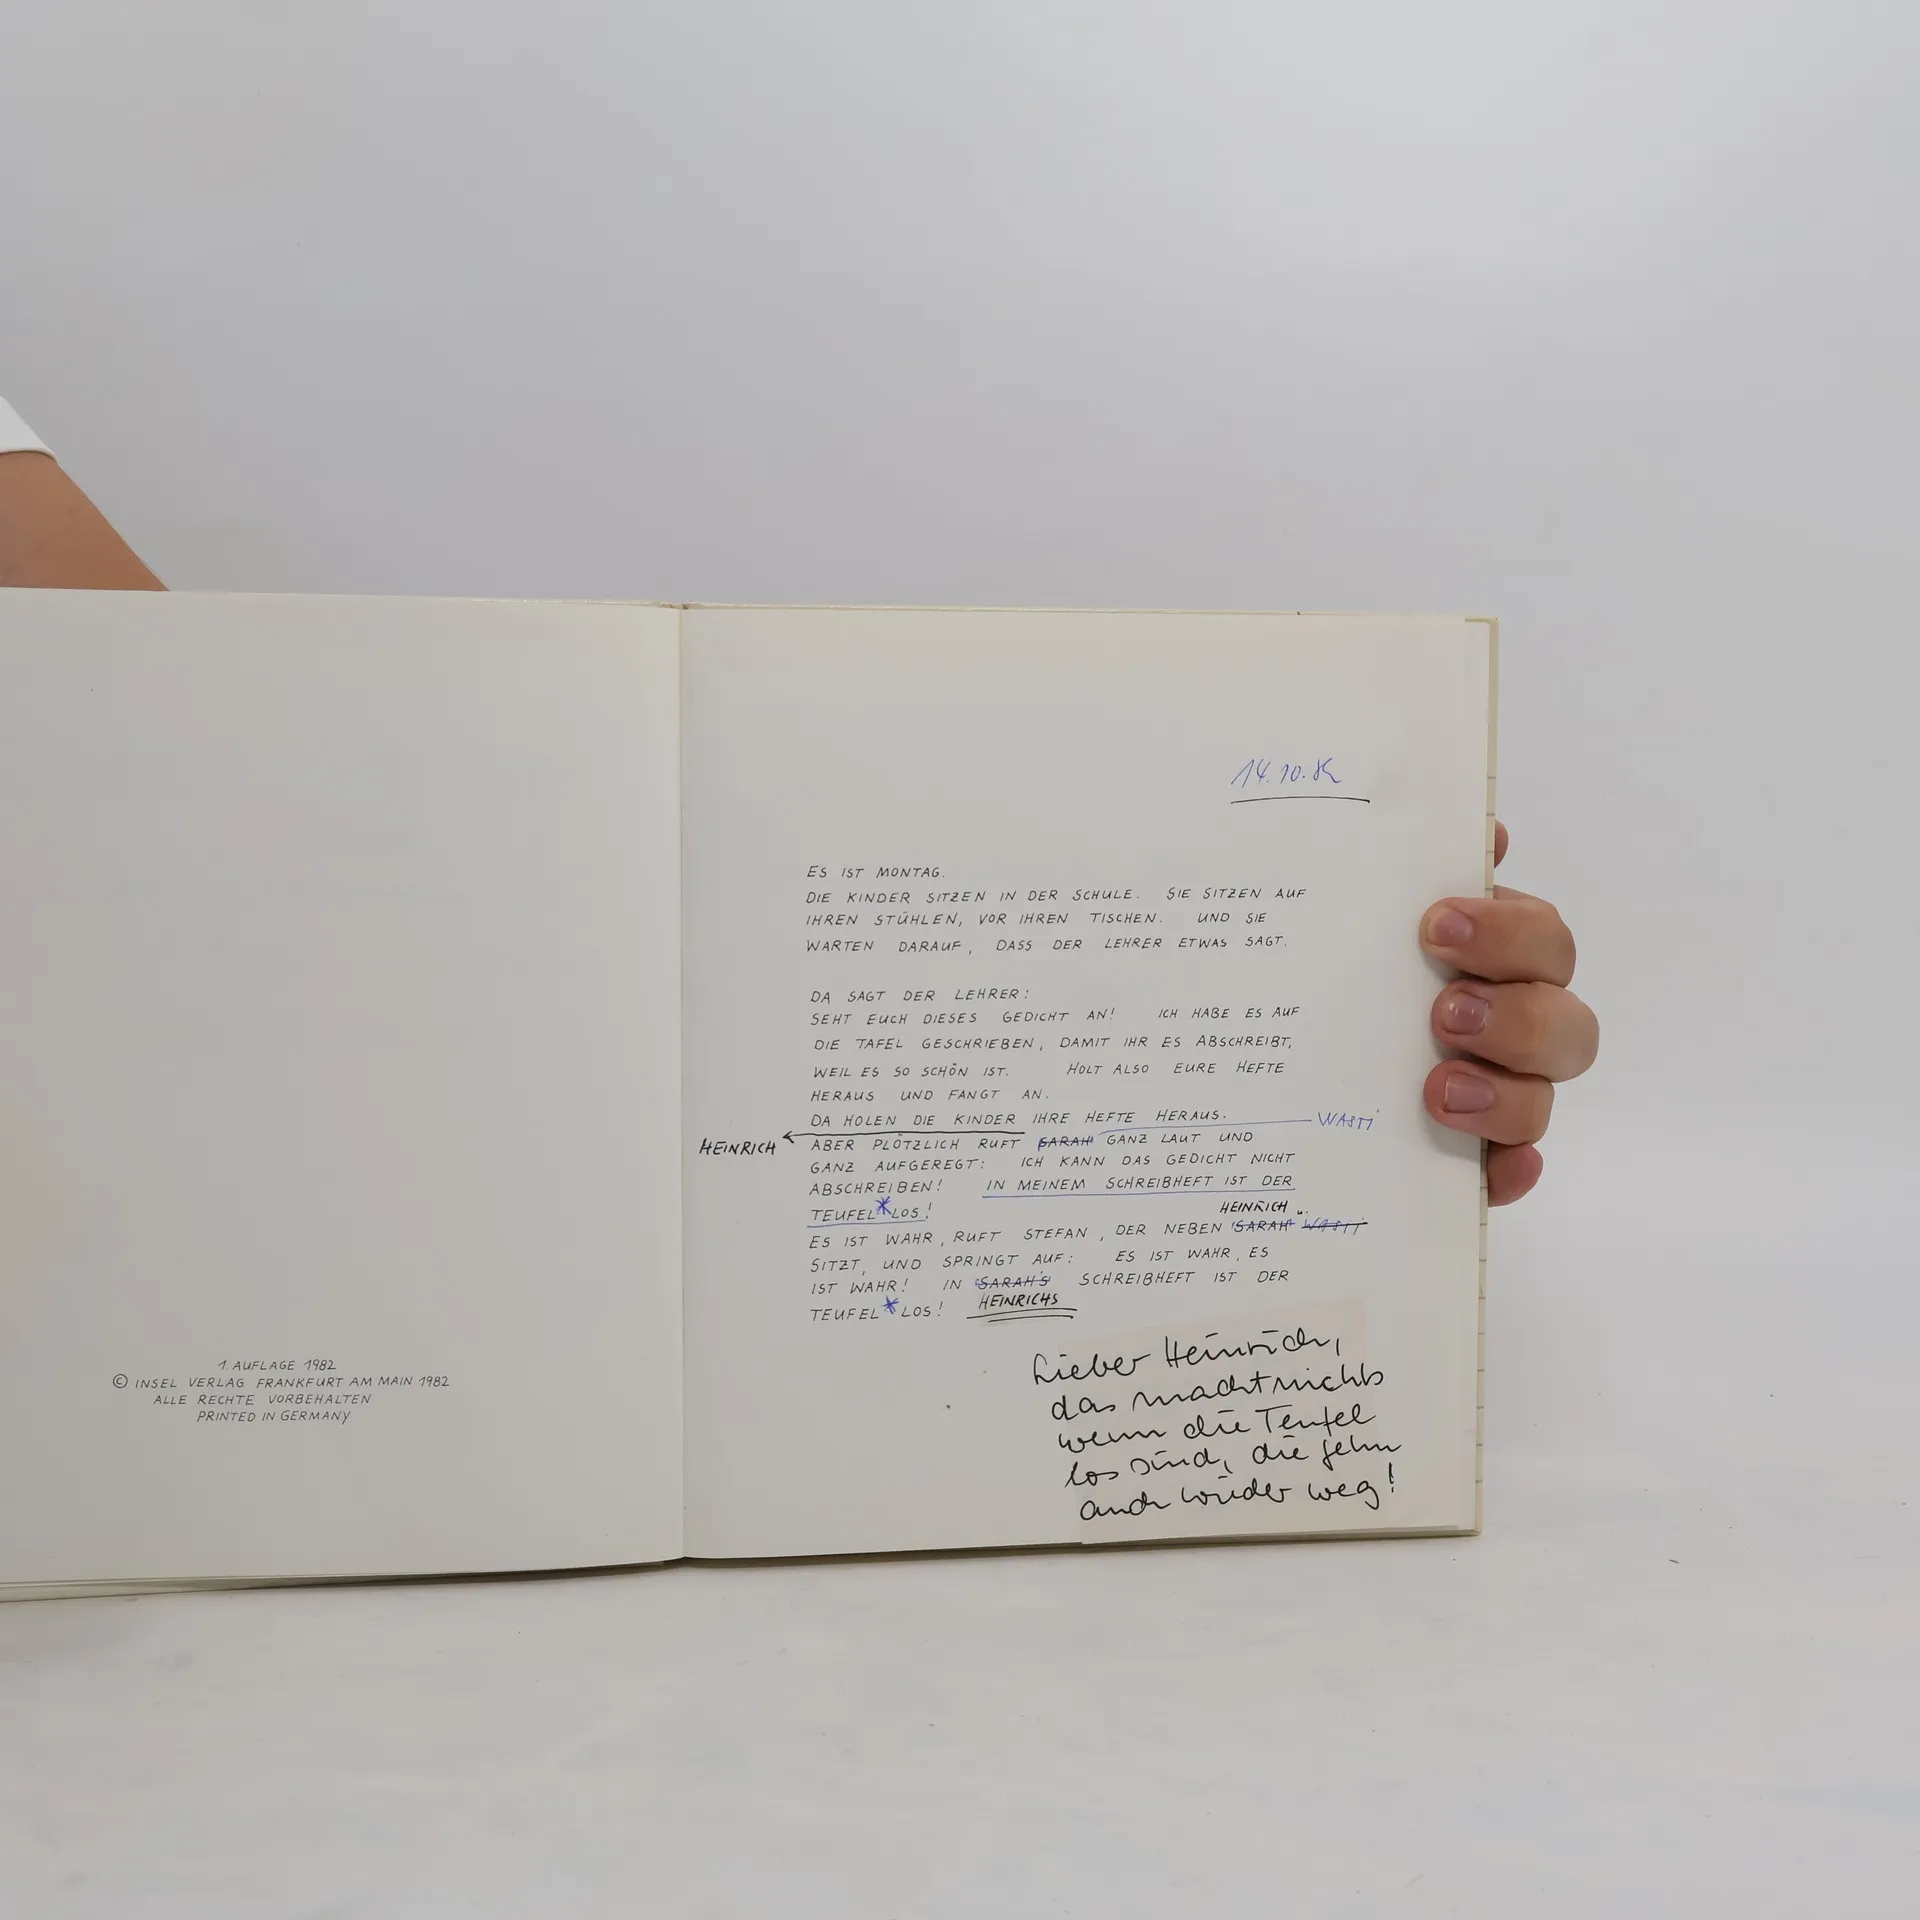 1. AUFLAGE 1982
© INSEL VERLAG FRANKFURT AM MAIN 1982
ALLE RECHTE VORBEHALTEN
PRINTED IN GERMANY
14.10.82
ES IST MONTAG.
DIE KINDER SITZEN IN DER SCHULE. SIE SITZEN AUF
IHREN STÜHLEN, VOR IHREN TISCHEN. UND SIE
WARTEN DARAUF, DASS DER LEHRER ETWAS SAGT.
DA SAGT DER LEHRER:
SEHT EUCH DIESES GEDICHT AN! ICH HABE ES AUF
DIE TAFEL GESCHRIEBEN, DAMIT IHR ES ABSCHREIBT,
WEIL ES SO SCHÖN IST. HOLT ALSO EURE HEFTE
HERAUS UND FANGT AN.
DA HOLEN DIE KINDER IHRE HEFTE HERAUS. WASTI
HEINRICH ABER PLÖTZLICH RUFT SARAH GANZ LAUT UND
GANZ AUFGEREGT: ICH KANN DAS GEDICHT NICHT
ABSCHREIBEN! IN MEINEM SCHREIBHEFT IST DER
TEUFEL*LOS!
HEINRICH u.
ES IST WAHR, RUFT STEFAN, DER NEBEN SARAH WASTI
SITZT, UND SPRINGT AUF: ES IST WAHR, ES
IST WAHR! IN SARAH'S SCHREIBHEFT IST DER
TEUFEL*LOS! HEINRICHS
Lieber Heinrich,
das macht nichts
wenn die Teufel
los sind, die gehn
auch wieder weg!